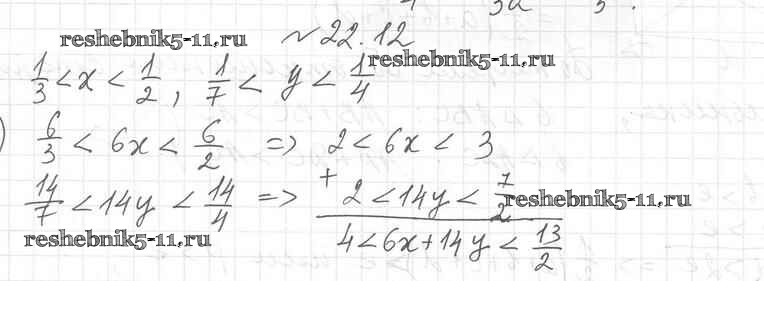 reshebnik5-11.ru
№ 22.12
reshebnik5-11.ru
1/3 < x < 1/2, 1/7 < y < 1/4
) 6/3 < 6x < 6/2 => 2 < 6x < 3
14/7 < 14y < 14/4 => + 2 < 14y < 7/2
reshebnik5-11.ru
reshebnik5-11.ru
4 < 6x + 14y < 13/2